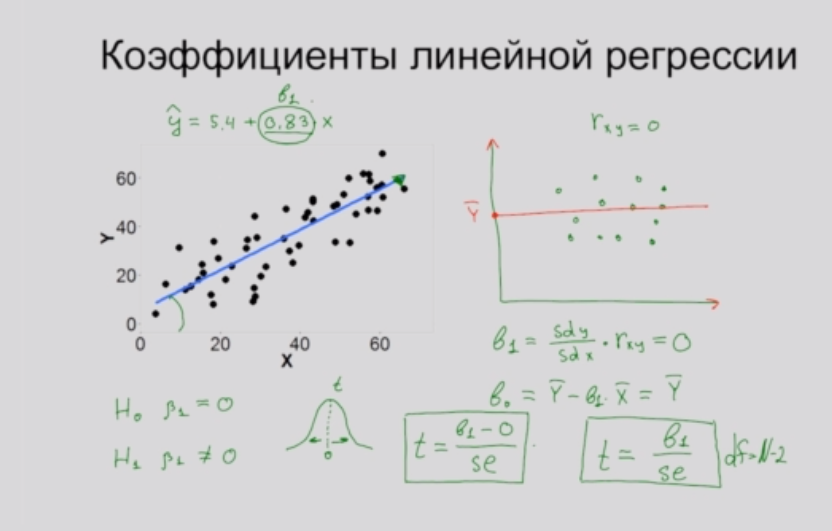 Коэффициенты линейной регрессии
b₁
ŷ = 5,4 + 0,83 x
r xy = 0
60
40
20
0
Y
0 20 40 60
X
Y̅
b₁ = sdy / sdx · rxy = 0
b₀ = Y̅ - b₁ X̅ = Y̅
H₀ β₁ = 0
H₁ β₁ ≠ 0
t
0
t = b₁ - 0 / se
t = b₁ / se
df = N-2